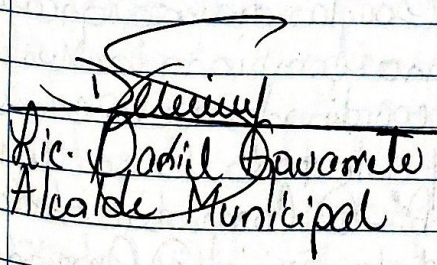 Lic. Daniel Navarrete
Alcalde Municipal